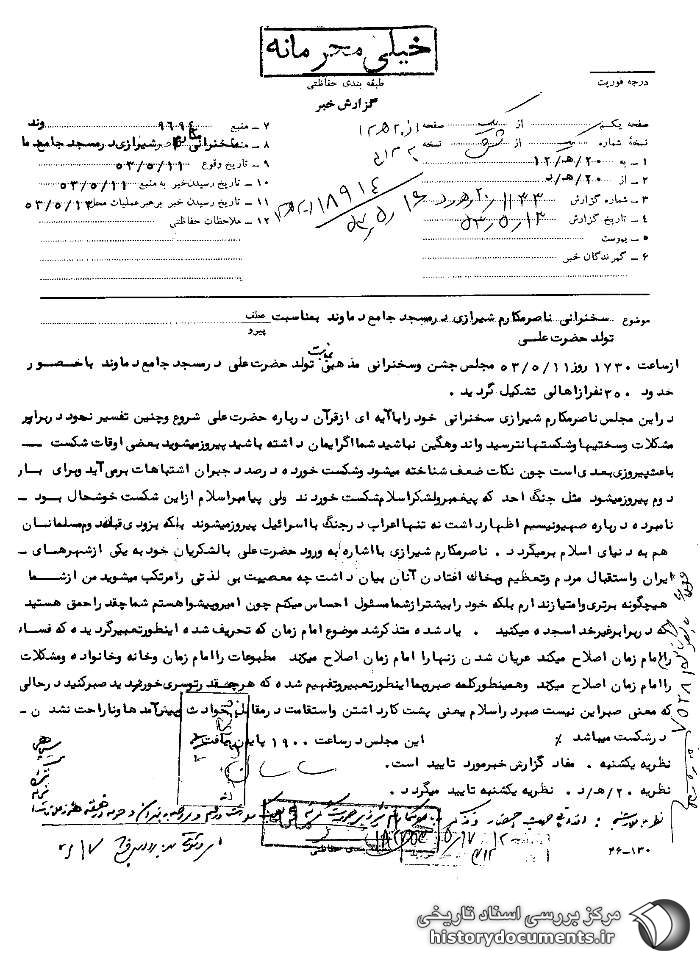 خیلی محرمانه
طبقه بندی حفاظتی
درجه فوریت
گزارش خبر
صفحه یکم از یک صفحه
نسخه شماره یک از نسخه
۱ – به ۲۰/ه‍ ۱۲/
۲ – از ۲۰/ه‍/د
۳ – شماره گزارش
۴ – تاریخ گزارش
۵ – پیوست
۶ – گیرندگان خبر
۷ – منبع ۹۶۹۴
۸ – منشاء سخنرانی ناصر مکارم شیرازی در مسجد جامع دماوند
۹ – تاریخ وقوع ۵۳/۵/۱۱
۱۰ – تاریخ رسیدن خبر به منبع ۵۳/۵/۱۱
۱۱ – تاریخ رسیدن خبر برهبر عملیات محل ۵۳/۵/۱۲
۱۲ – ملاحظات حفاظتی
۱۸۹۱۴
موضوع سخنرانی ناصر مکارم شیرازی در مسجد جامع دماوند بمناسبت عطف
تولد حضرت علی پیرو
از ساعت ۱۷۳۰ روز ۵۳/۵/۱۱ مجلس جشن و سخنرانی مذهبی بمناسبت تولد حضرت علی در مسجد جامع دماوند با حضور
حدود ۳۵۰ نفر از اهالی تشکیل گردید .
در این مجلس ناصر مکارم شیرازی سخنرانی خود را با آیه ای از قرآن درباره حضرت علی شروع و چنین تفسیر نمود در برابر
مشکلات و سختیها و شکستها نترسید و اندوهگین نباشید شما اگر ایمان داشته باشید پیروز میشوید بعضی اوقات شکست –
باعث پیروزی بعدی است چون نکات ضعف شناخته میشود و شکست خورده درصدد جبران اشتباهات برمی آید و برای بار
دوم پیروز میشود مثل جنگ احد که پیغمبر و لشکر اسلام شکست خوردند ولی پیامبر اسلام از این شکست خوشحال بود –
نامبرده درباره صهیونیسم اظهار داشت نه تنها اعراب در جنگ با اسرائیل پیروز میشوند بلکه بزودی قبله دوم مسلمانان
هم به دنیای اسلام برمیگردد . ناصر مکارم شیرازی با اشاره به ورود حضرت علی با لشکریان خود به یکی از شهرهای –
ایران و استقبال مردم و تعظیم و بخاک افتادن آنان بیان داشت چه معصیت بی لذتی را مرتکب میشوید من از شما
هیچگونه برتری و امتیاز ندارم بلکه خود را بیشتر از شما مسئول احساس میکنم چون امیر و پیشوا هستم شما چقدر احمق هستید
که در برابر غیر خدا سجده میکنید . یاد شده متذکر شد موضوع امام زمان که تحریف شده اینطور تعبیر گردیده که فساد
را امام زمان اصلاح میکند عریان شدن زنها را امام زمان اصلاح میکند مطبوعات را امام زمان و خانه و خانواده و مشکلات
را امام زمان اصلاح میکند و همینطور کلمه صبر و بما اینطور تعبیر و تفهیم شده که هر چقدر توسری خوردید صبر کنید در حالی
که معنی صبر این نیست صبر در اسلام یعنی پشت کار داشتن و استقامت در مقابل حوادث و پیش آمدها و ناراحت نشدن –
در شکست میباشد ٪ این مجلس در ساعت ۱۹۰۰ پایان یافت .
نظریه یکشنبه . مفاد گزارش خبر مورد تایید است.
نظریه ۲۰/ه‍/د . نظریه یکشنبه تایید میگردد .
۲۶-۱۳۰
مرکز بررسی اسناد تاریخی
historydocuments.ir